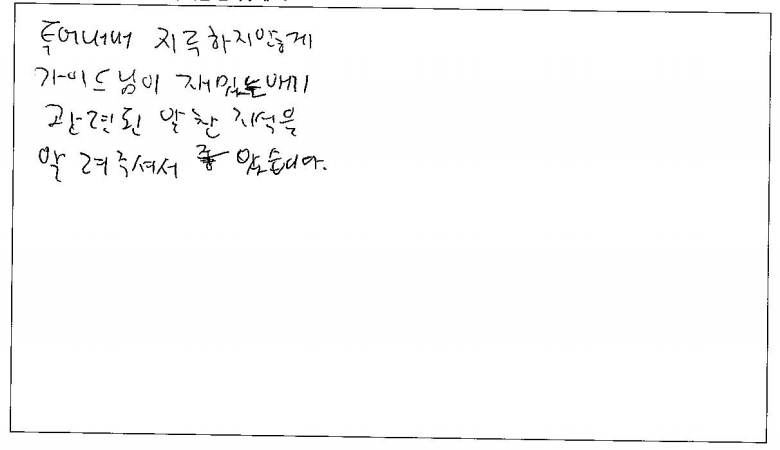 투어내내 지루하지않게
가이드님이 재밌는얘기
관련된 알찬 지식을
알려주셔서 좋았습니다.